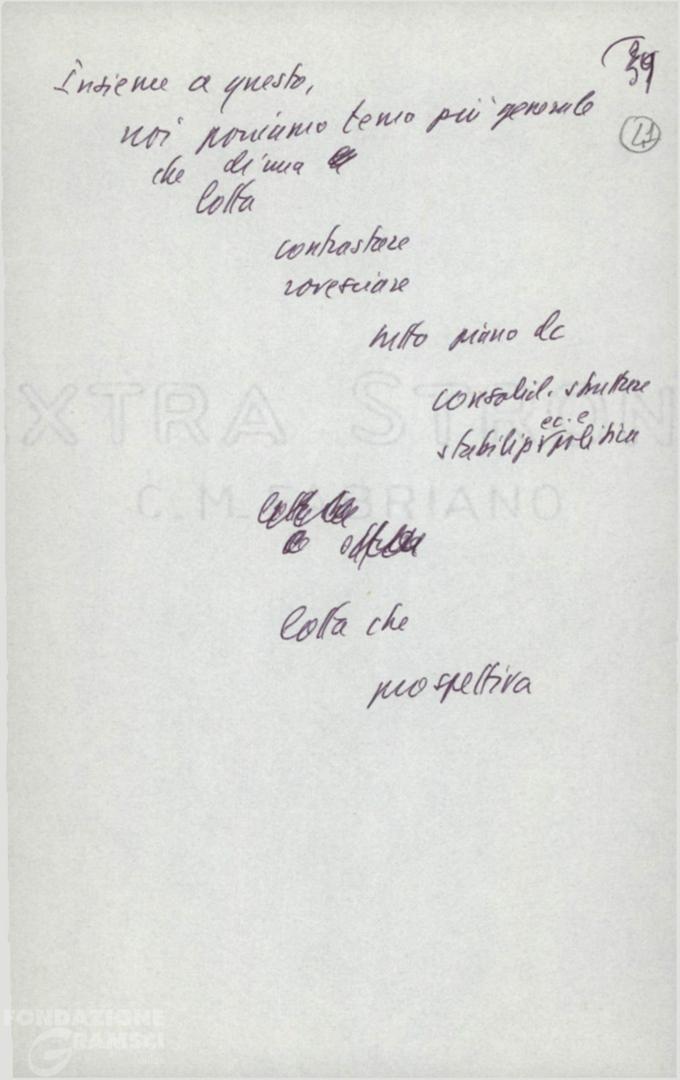 39
Insieme a questo,
21
noi poniamo tema più generale
che di una
lotta
contrastare
rovesciare
tutto piano di
consolid. strutture
ec. e
stabiliz politica
lotta che
prospettiva
EXTRA STRON
C.M. FABRIANO
FONDAZIONE
GRAMSCI